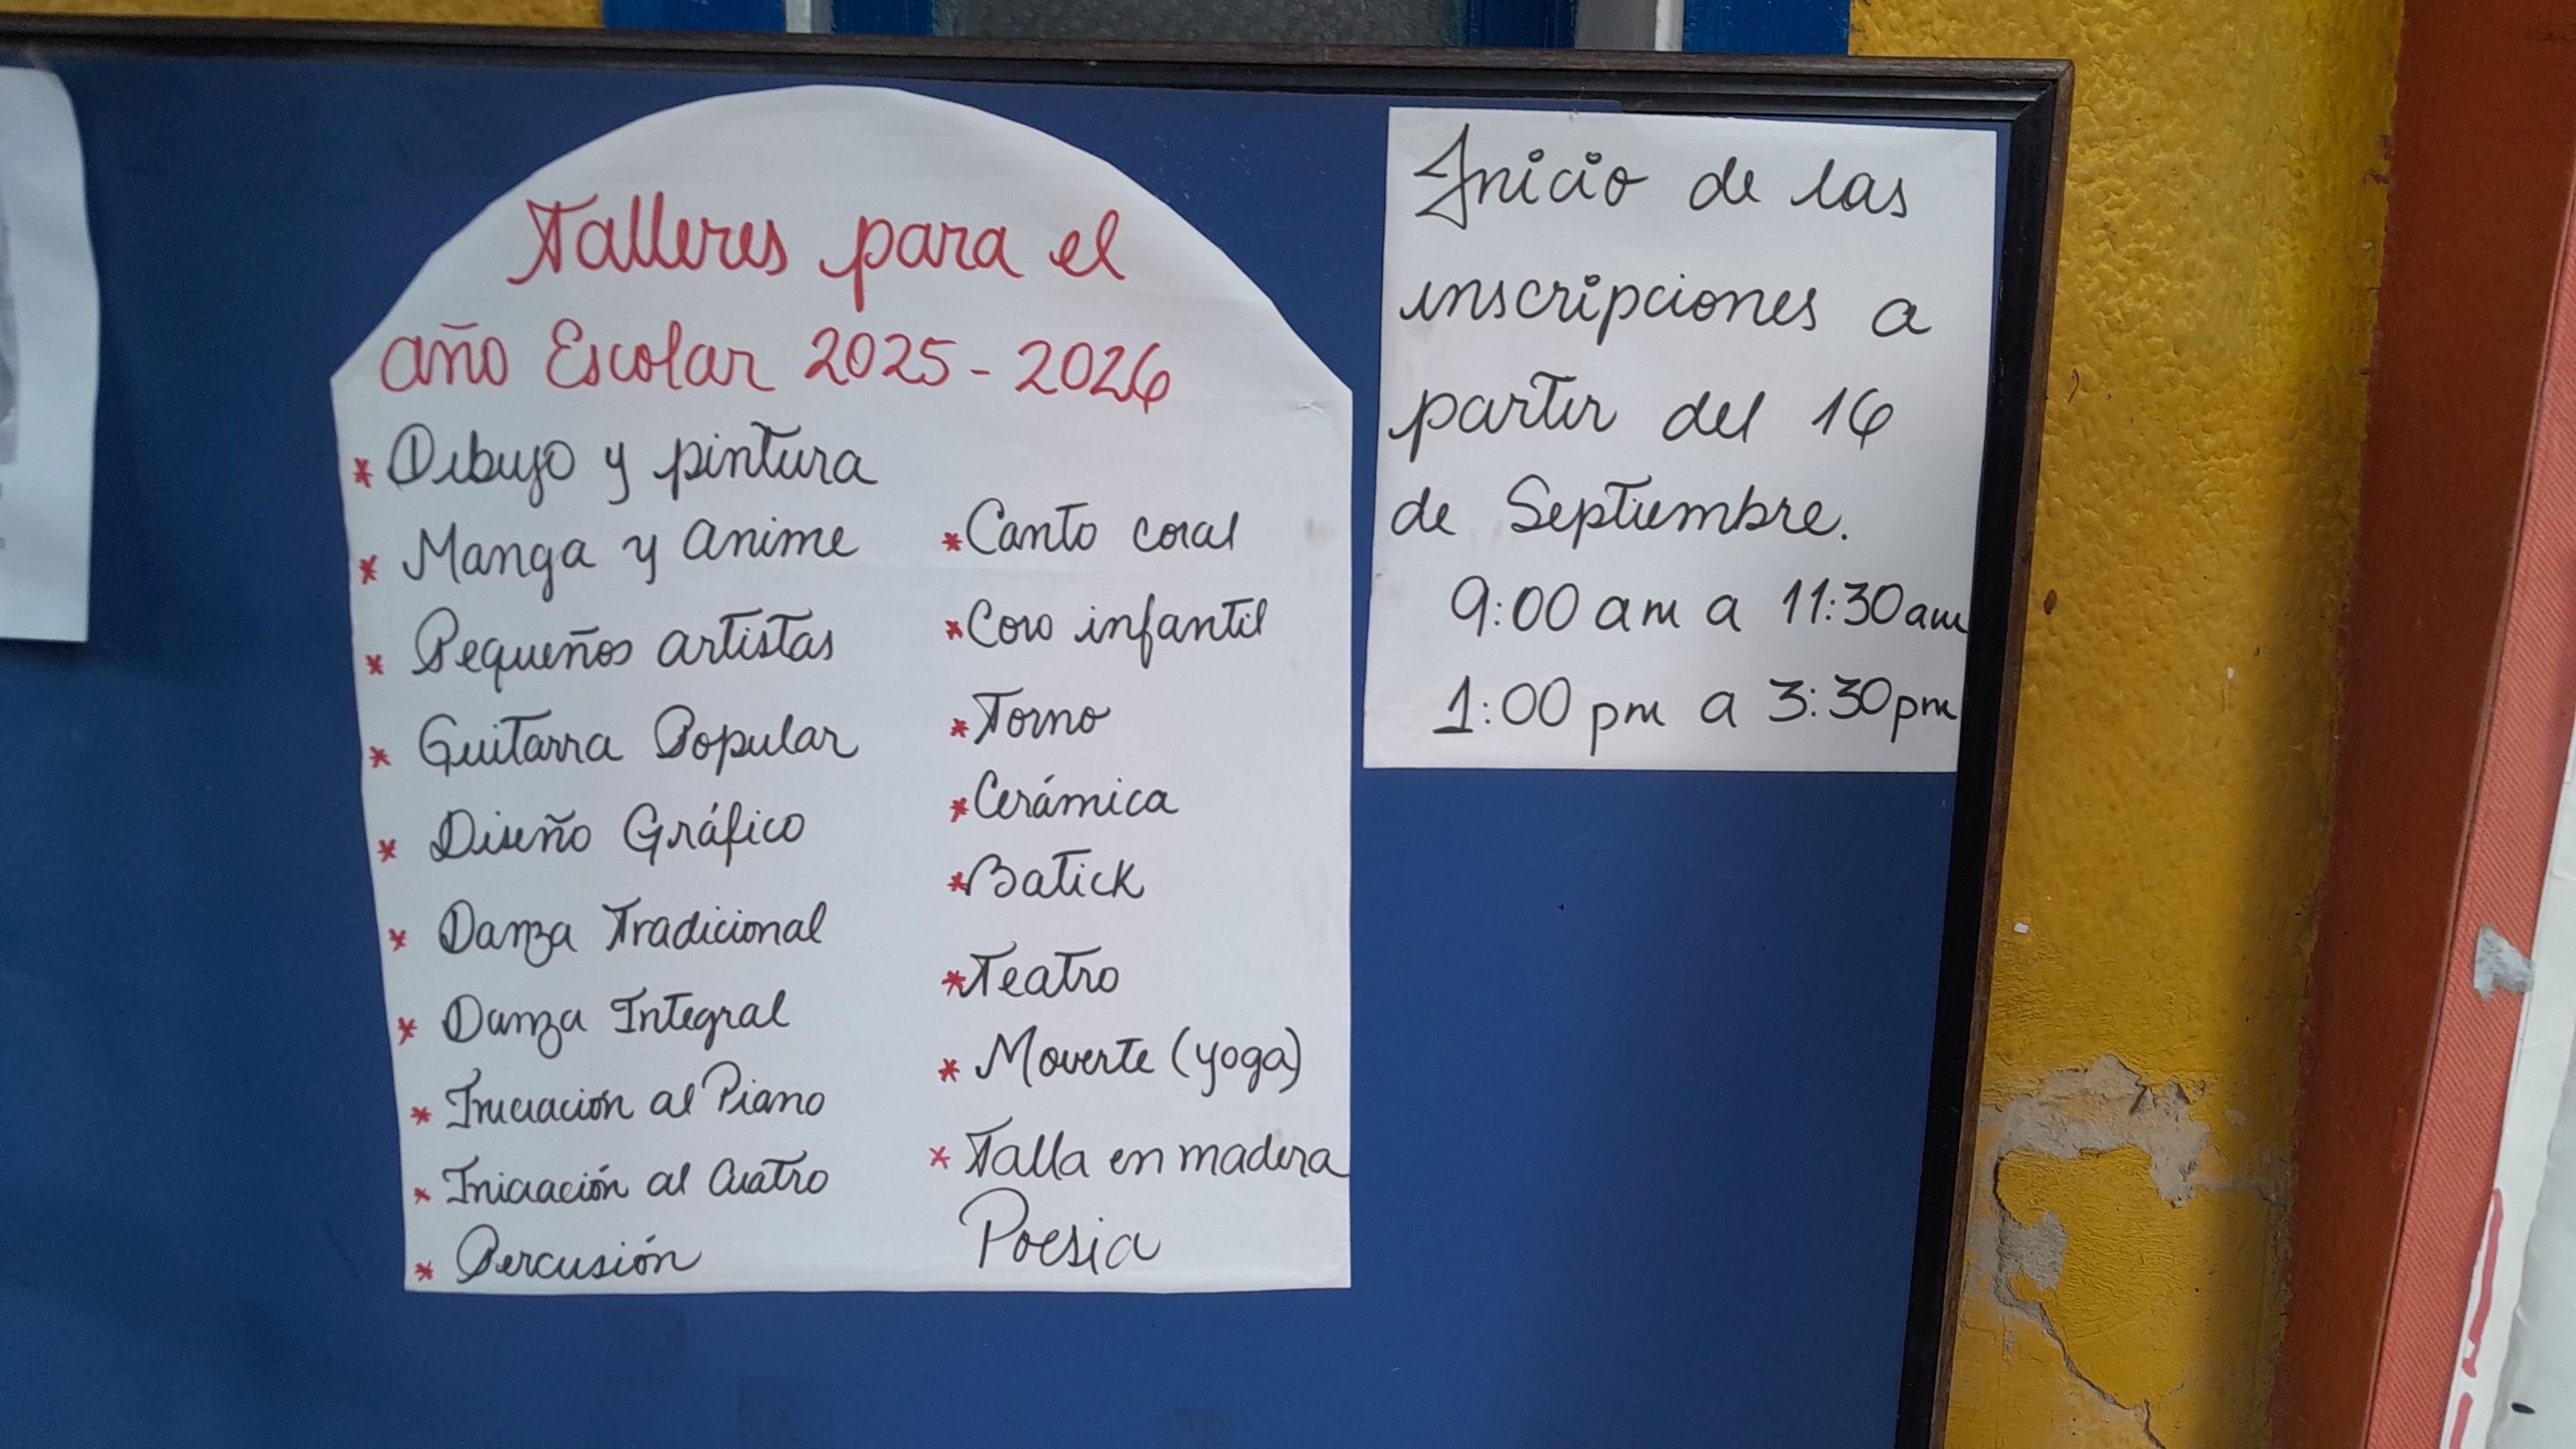 Talleres para el
año Escolar 2025 - 2026
* Dibujo y pintura
* Manga y anime
* Pequeños artistas
* Guitarra Popular
* Diseño Gráfico
* Danza Tradicional
* Danza Integral
* Iniciación al Piano
* Iniciación al Cuatro
* Percusión
* Canto coral
* Coro infantil
* Torno
* Cerámica
* Batick
* Teatro
* Moverte (yoga)
* Talla en madera
Poesia
Inicio de las
inscripciones a
partir del 16
de Septiembre.
9:00 am a 11:30 am
1:00 pm a 3:30 pm